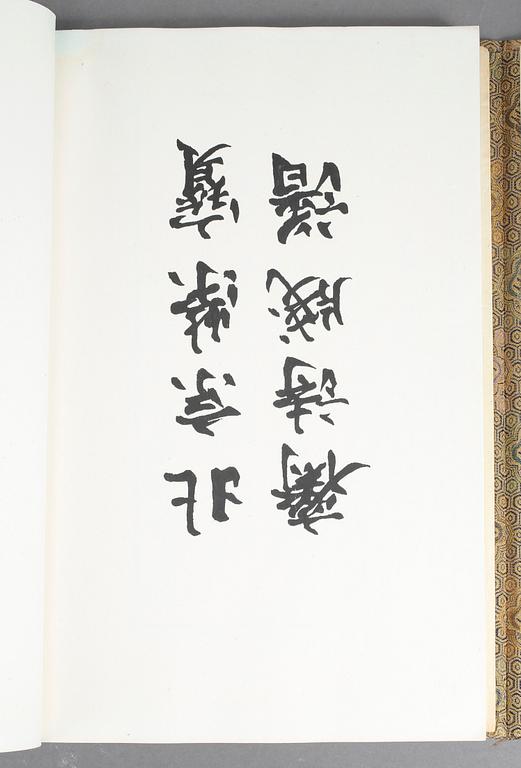 北京榮寶
齋詩箋譜